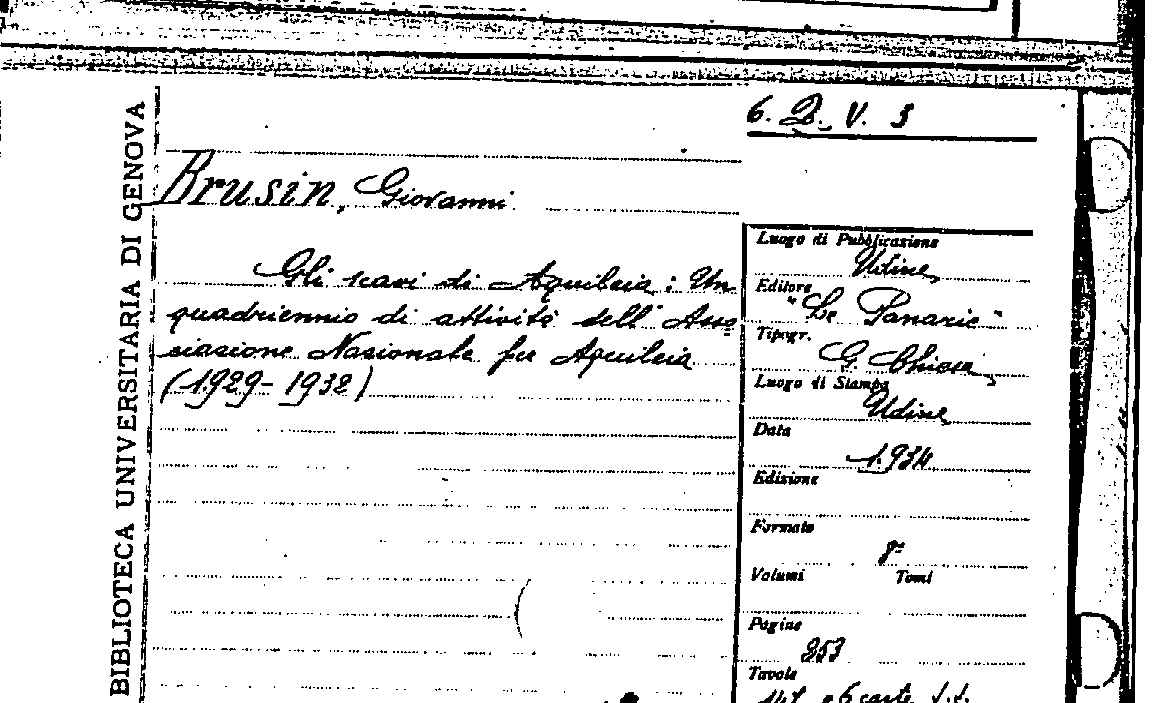 BIBLIOTECA UNIVERSITARIA DI GENOVA
6. B. V. 3
Brusin, Giovanni
Gli scavi di Aquileia: Un
quadriennio di attività dell'Asso
ciazione Nazionale per Aquileia
(1929-1932)
Luogo di Pubblicazione
Udine
Editore
"La Panarie"
Tipogr.
G. Chiesa
Luogo di Stampa
Udine
Data
1934
Edizione
Formato
8°
Volumi Tomi
Pagine
253
Tavole
147 e 6 carte